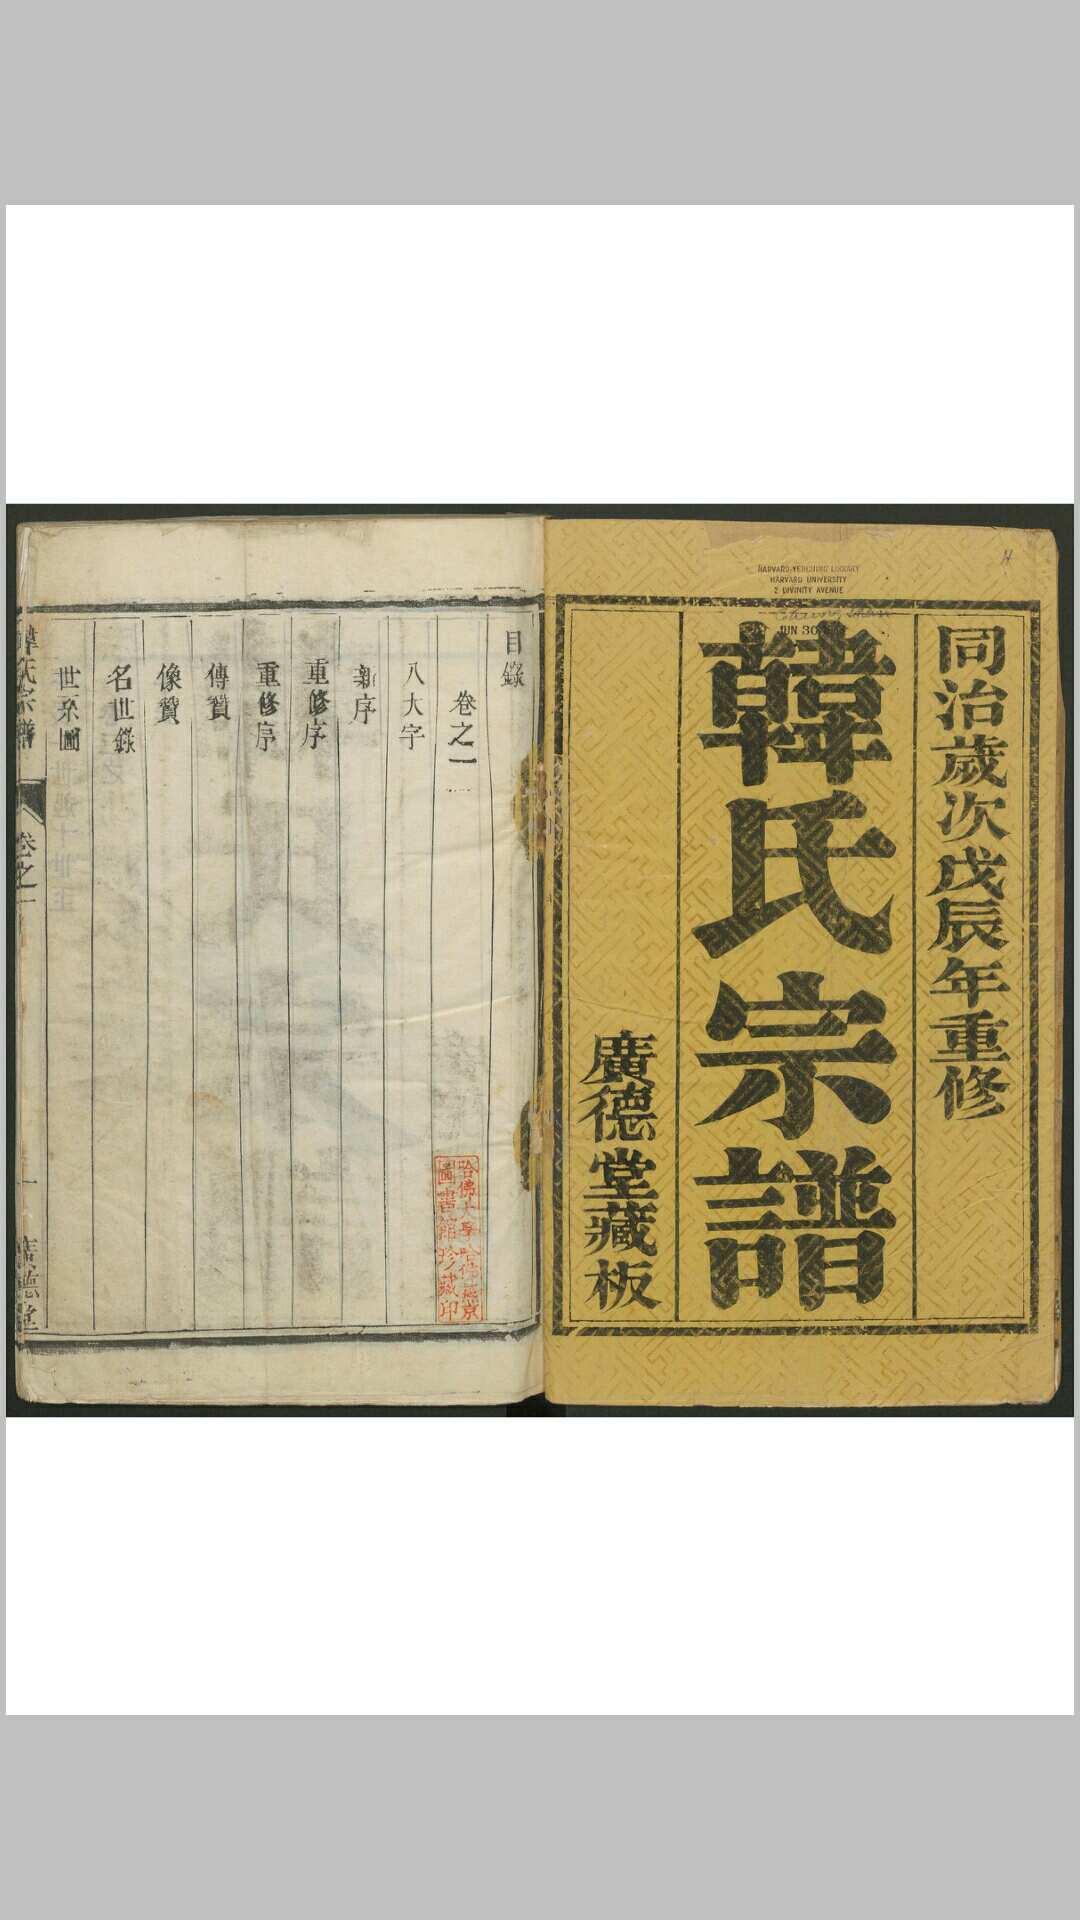 HARVARD-YENCHING LIBRARY
HARVARD UNIVERSITY
2 DIVINITY AVENUE
JUN 30
同治歲次戊辰年重修
韓氏宗譜
廣德堂藏板
目錄
卷之一
八大字
新序
重修序
重修序
傳贊
像贊
名世錄
世系圖
韓氏宗譜
卷之一
一
廣德堂
哈佛大學哈佛燕京
圖書館珍藏印